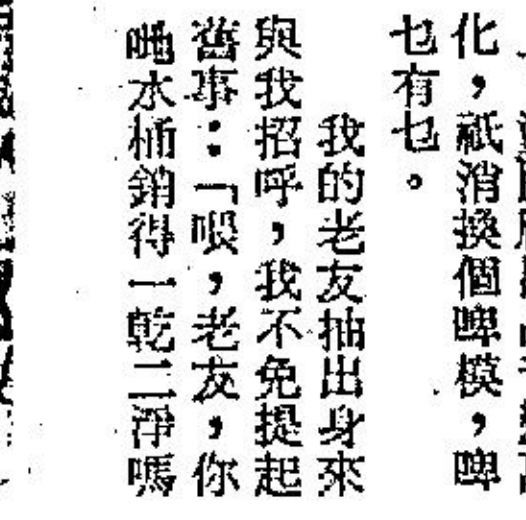 化，祇消換個啤模，啤
乜有乜。
我的老友抽出身來
與我招呼，我不免提起
舊事：「喂，老友，你
哋水桶銷得一乾二淨嗎